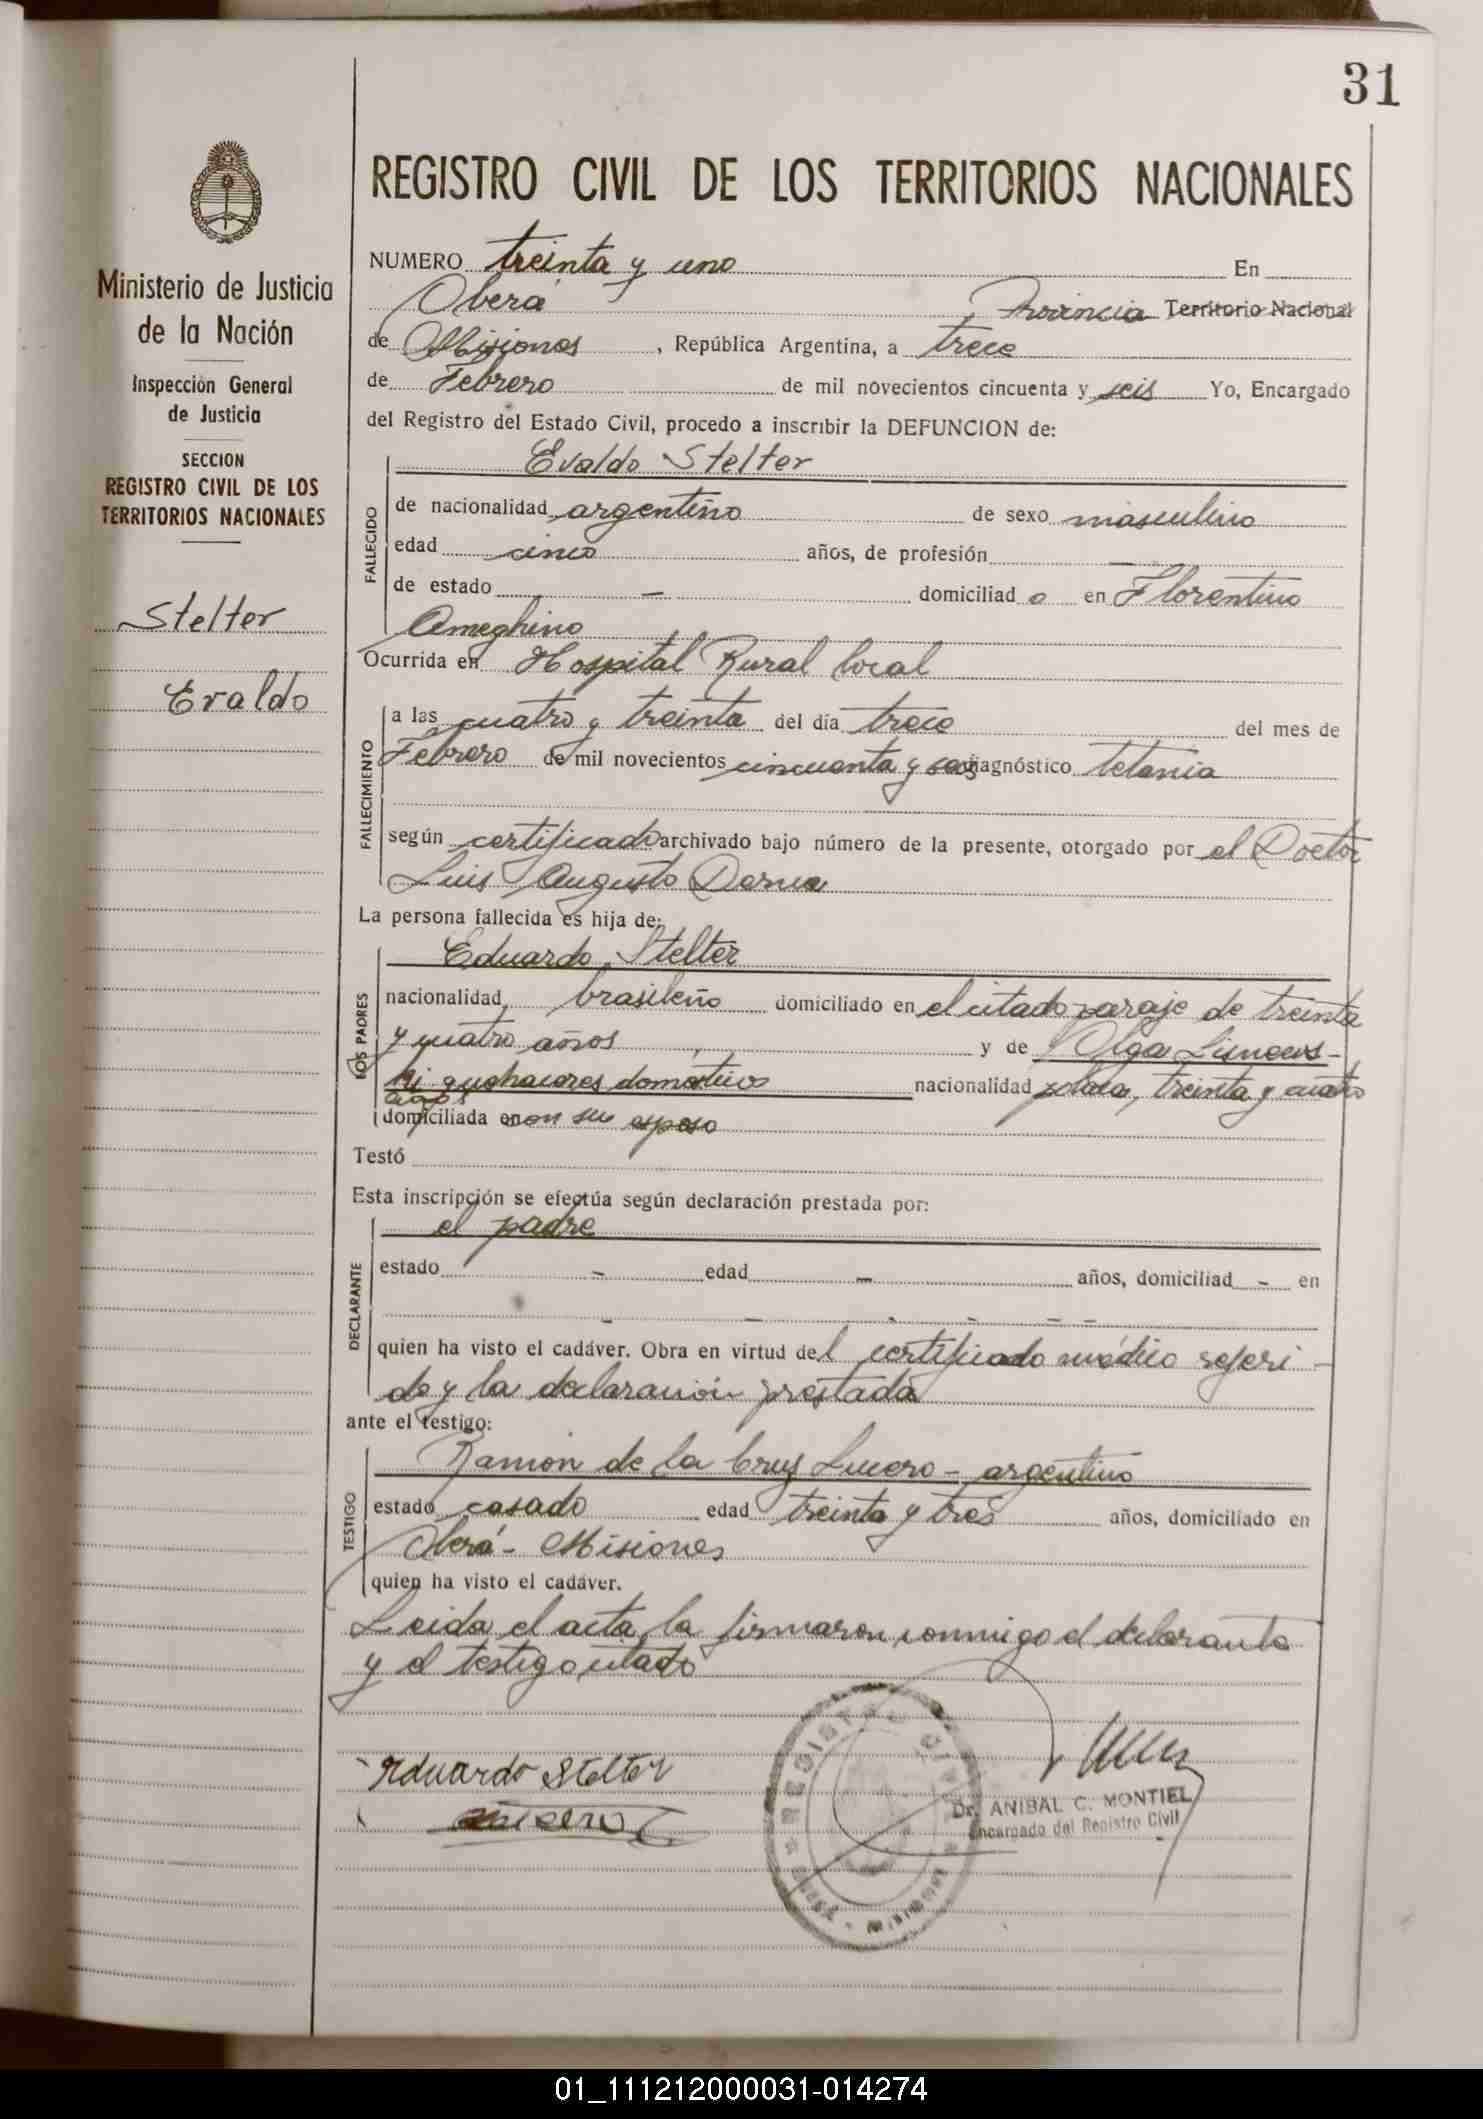 31
REGISTRO CIVIL DE LOS TERRITORIOS NACIONALES
Ministerio de Justicia
de la Nación
Inspección General
de Justicia
SECCION
REGISTRO CIVIL DE LOS
TERRITORIOS NACIONALES
Stelter
Evaldo
NUMERO treinta y uno En
Oberá Provincia Territorio Nacional
de Misiones, República Argentina, a trece
de Febrero de mil novecientos cincuenta y seis Yo, Encargado
del Registro del Estado Civil, procedo a inscribir la DEFUNCION de:
FALLECIDO
Evaldo Stelter
de nacionalidad argentino de sexo masculino
edad cinco años, de profesión —
de estado — domiciliad o en Florentino
Ameghino
Ocurrida en Hospital Rural local
FALLECIMIENTO
a las cuatro y treinta del día trece del mes de
Febrero de mil novecientos cincuenta y seis diagnóstico tetania
según certificado archivado bajo número de la presente, otorgado por el Doctor
Luis Augusto Derna
La persona fallecida es hija de:
LOS PADRES
Eduardo Stelter
nacionalidad, brasileño domiciliado en el citado paraje de treinta
y cuatro años y de Olga
ki quehaceres domésticos nacionalidad polaca, treinta y cuatro
años
domiciliada con su esposo
Testó
Esta inscripción se efectúa según declaración prestada por:
DECLARANTE
el padre
estado — edad — años, domiciliad - en
quien ha visto el cadáver. Obra en virtud del certificado médico referi-
do y la declaración prestada
ante el testigo:
TESTIGO
Ramón de la Cruz Lucero - argentino
estado casado edad treinta y tres años, domiciliado en
Oberá - Misiones
quien ha visto el cadáver.
Leida el acta, la firmaron conmigo el declarante
y el testigo citado
Eduardo Stelter
Lucero
REGISTRO CIVIL
Dr. ANIBAL C. MONTIEL
Encargado del Registro Civil
01_111212000031-014274